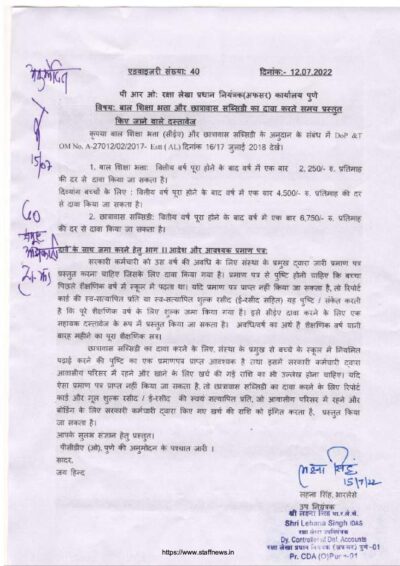 एडवाइजरी संख्या: 40 दिनांक:- 12.07.2022
पी आर ओ: रक्षा लेखा प्रधान नियंत्रक(अफसर) कार्यालय पुणे
विषय: बाल शिक्षा भत्ता और छात्रावास सब्सिडी का दावा करते समय प्रस्तुत
किए जाने वाले दस्तावेज
कृपया बाल शिक्षा भत्ता (सीईए) और छात्रावास सब्सिडी के अनुदान के संबंध में DoP &T
OM No. A-27012/02/2017- Estt ( AL) दिनांक 16/17 जुलाई 2018 देखें।
1. बाल शिक्षा भत्ता: वित्तीय वर्ष पूरा होने के बाद वर्ष में एक बार 2, 250/- रु. प्रतिमाह
की दर से दावा किया जा सकता है।
दिव्यांग बच्चों के लिए : वित्तीय वर्ष पूरा होने के बाद वर्ष में एक बार 4,500/- रु. प्रतिमाह की दर
से दावा किया जा सकता है।
2. छात्रावास सब्सिडी: वित्तीय वर्ष पूरा होने के बाद वर्ष में एक बार 6,750/- रु. प्रतिमाह
की दर से दावा किया जा सकता है।
दावे के साथ जमा करने हेतु भाग II आदेश और आवश्यक प्रमाण पत्र:
सरकारी कर्मचारी को उस वर्ष की अवधि के लिए संस्था के प्रमुख द्वारा जारी प्रमाण पत्र
प्रस्तुत करना चाहिए जिसके लिए दावा किया गया है। प्रमाण पत्र से पुष्टि होनी चाहिए कि बच्चा
पिछले शैक्षणिक वर्ष में स्कूल में पढ़ता था। यदि प्रमाण पत्र प्राप्त नहीं किया जा सकता है, तो रिपोर्ट
कार्ड की स्व-सत्यापित प्रति या स्व-सत्यापित शुल्क रसीद (ई-रसीद सहित) यह पुष्टि / संकेत करती
है कि पूरे शैक्षणिक वर्ष के लिए शुल्क जमा किया गया है। इसे सीईए दावा करने के लिए एक
सहायक दस्तावेज के रूप में प्रस्तुत किया जा सकता है। अवधि/वर्ष का अर्थ है शैक्षणिक वर्ष यानी
बारह महीने का पूरा शैक्षणिक सत्र।
छात्रावास सब्सिडी का दावा करने के लिए, संस्था के प्रमुख से बच्चे के स्कूल में नियमित
पढ़ाई करने की पुष्टि का एक प्रमाणपत्र प्राप्त आवश्यक है तथा इसमें सरकारी कर्मचारी द्वारा
आवासीय परिसर में रहने और खाने के लिए खर्च की गई राशि का भी उल्लेख होना चाहिए। यदि
ऐसा प्रमाण पत्र प्राप्त नहीं किया जा सकता है, तो छात्रावास सब्सिडी का दावा करने के लिए रिपोर्ट
कार्ड और मूल शुल्क रसीद / ई-रसीद की स्वयं सत्यापित प्रति, जो आवासीय परिसर में रहने और
बोर्डिंग के लिए सरकारी कर्मचारी द्वारा किए गए खर्च की राशि को इंगित करता है, प्रस्तुत किया
जा सकता है।
आपके सुलभ संज्ञान हेतु प्रस्तुत।
पीसीडीए (ओ), पुणे की अनुमोदन के पश्चात जारी ।
सादर,
जय हिन्द
15/7/22
लहना सिंह, भारलेसे
उप नियंत्रक
श्री लहना सिंह भा.र.ले.से.
Shri Lehana Singh IDAS
रक्षा लेखा उपनियंत्रक
Dy. Controller of Def. Accounts
रक्षा लेखा प्रधान नियंत्रक (अफसर) पुणे-01
Pr. CDA (O) Pune-01
अनुमोदित
15/07
GO
https://www.staffnews.in